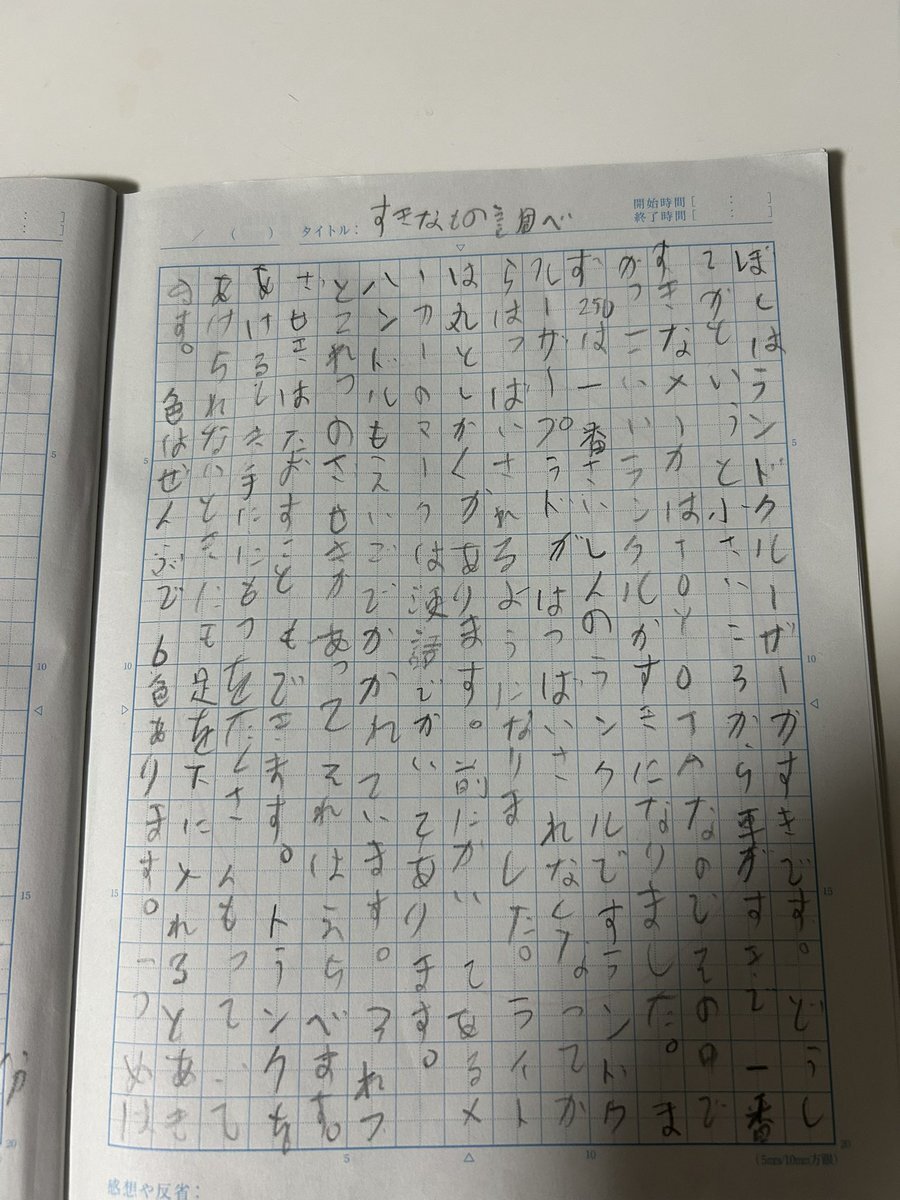 開始時間[ : ]
終了時間[ : ]
/ ( ) タイトル: すきなもの調べ
ぼくはランドクルーザーがすきです。どうし
てかというと小さいころから車がすきで一番
すきなメーカはTOYOTAなのでその中で
かっこいいランクルがすきになりました。ま
ず250は一番さいしんのランクルですランドク
ルーザープラドがはっばいされなくなってか
らはっばいされるようになりました。ライト
は丸としかくがあります。前にかいてあるメ
ーカーのマークは英語でかいてあります。
ハンドルもえいごでかかれています。3れつ
と2れつのざせきがあってそれはえらべます。
ざせきはたおすこともできます。トランクを
あけるとき手にもつをたくさんもっていて
あけられないときにも足を下に入れるとあき
ます。色はぜんぶで6色あります。一つめは
感想や反省:
(5mm/10mm方眼)